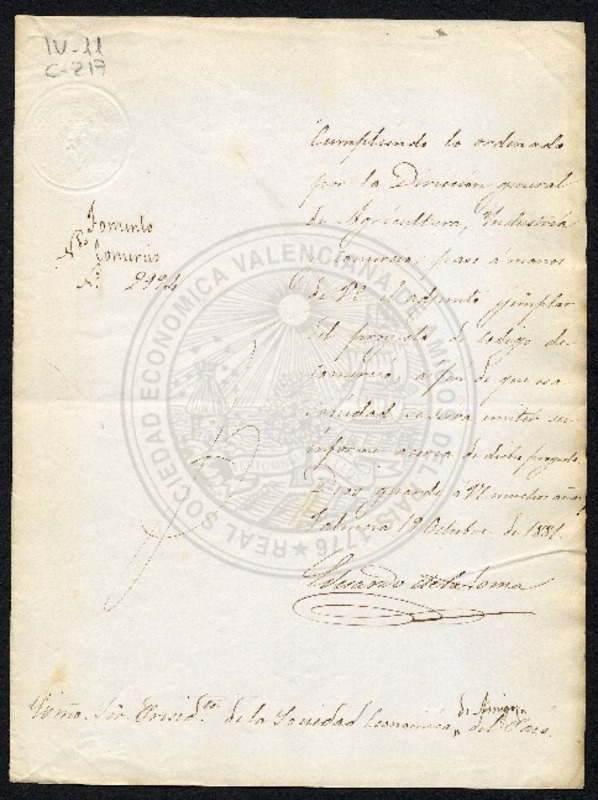 IV-11
C-217
Fomento
N.do Comercio
N.º 2994
Cumpliendo lo ordenado
por la Direccion general
de Agricultura, Industria
y Comercio, paso á manos
de VE el adjunto ejemplar
del proyecto de Codigo de
Comercio, á fin de que esa
Sociedad se sirva emitir su
informe acerca de dicho proyecto.
Dios guarde a VE muchos años.
Valencia 19 Octubre de 1881.
Eduardo de la Loma
Exmo. Sr. Presid.te de la Sociedad Económica de Amigos del Pais.
REAL SOCIEDAD ECONOMICA VALENCIANA DE AMIGOS DEL PAIS ★ 1776 ★